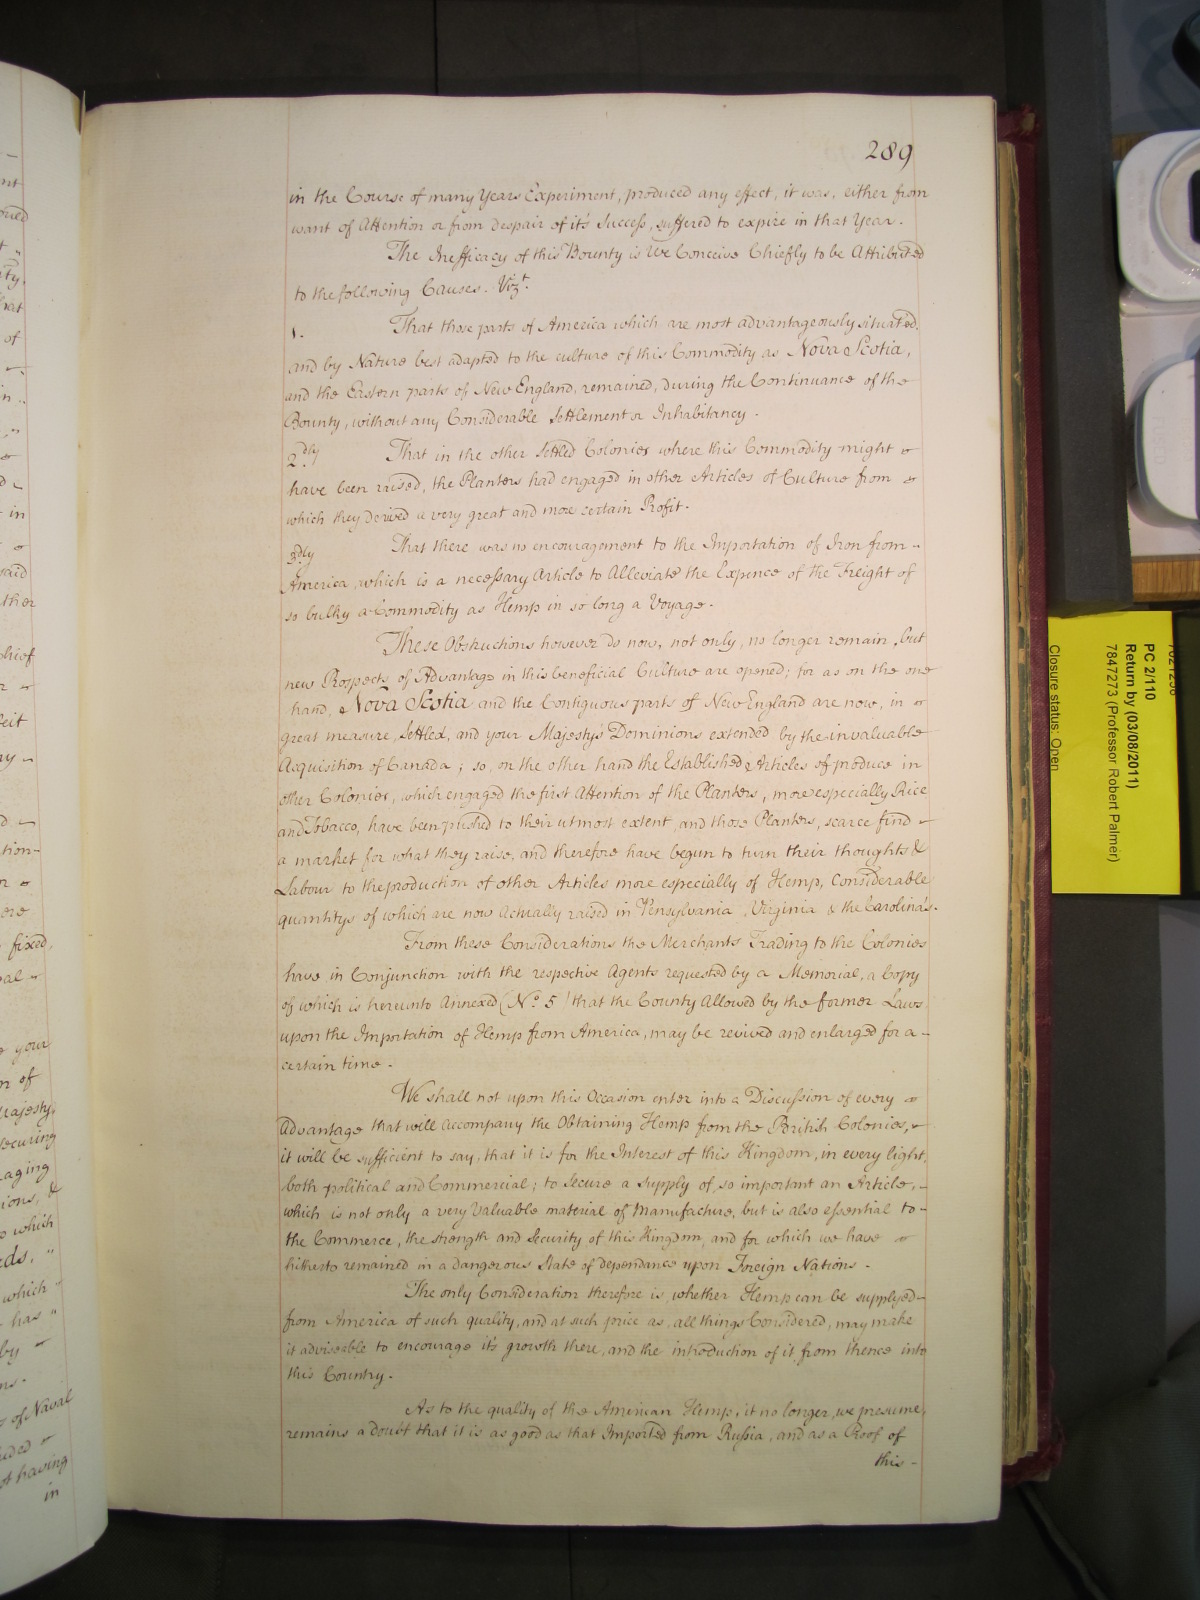 289
in the Course of many Years Experiment, produced any effect, it was, either from
want of Attention or from despair of it's Success, suffered to expire in that Year.
The Inefficacy of this Bounty is We Conceive Chiefly to be Attributed
to the following Causes. Vizt.
1. That those parts of America which are most advantageously situated,
and by Nature best adapted to the culture of this Commodity as Nova Scotia,
and the Eastern parts of New England, remained, during the Continuance of the
Bounty, without any Considerable Settlement or Inhabitancy.
2dly That in the other Settled Colonies where this Commodity might
have been raised, the Planters had engaged in other Articles of Culture from
which they derived a very great and more certain Profit.
3dly That there was no encouragement to the Importation of Iron from
America, which is a necessary Article to Alleviate the Expence of the Freight of
so bulky a Commodity as Hemp in so long a Voyage.
These Obstructions however do now, not only, no longer remain, but
new Prospects of Advantage in this beneficial Culture are opened; for as on the one
hand, Nova Scotia and the Contiguous parts of New England are now, in
great measure, Settled, and your Majestys Dominions extended by the invaluable
Acquisition of Canada; so, on the other hand the Established Articles of produce in
other Colonies, which engaged the first Attention of the Planters, more especially Rice
and Tobacco, have been pushed to their utmost extent, and those Planters, scarce find
a market for what they raise, and therefore have begun to turn their thoughts &
Labour to the production of other Articles more especially of Hemp, Considerable
quantitys of which are now Actually raised in Pensylvania, Virginia & the Carolina's.
From these Considerations the Merchants Trading to the Colonies
have in Conjunction with the respective Agents requested by a Memorial, a Copy
of which is hereunto Annexed (No. 5) that the Bounty Allowed by the former Laws
upon the Importation of Hemp from America, may be revived and enlarged for a
certain time.
We shall not upon this Occasion enter into a Discussion of every
Advantage that will accompany the Obtaining Hemp from the British Colonies,
it will be sufficient to say, that it is for the Interest of this Kingdom, in every light,
both political and Commercial; to Secure a supply of so important an Article,
which is not only a very Valuable material of Manufacture, but is also essential to
the Commerce, the strength and Security of this Kingdom, and for which we have
hitherto remained in a dangerous State of dependance upon Foreign Nations.
The only Consideration therefore is, whether Hemp can be supplyed
from America of such quality, and at such price as, all things Considered, may make
it adviseable to encourage it's growth there, and the introduction of it from thence into
this Country.
As to the quality of the American Hemp, it no longer, we presume,
remains a doubt that it is as good as that Imported from Russia, and as a Proof of
this
PC 2/110
Return by (03/08/2011)
7847273 (Professor Robert Palmer)
Closure status: Open